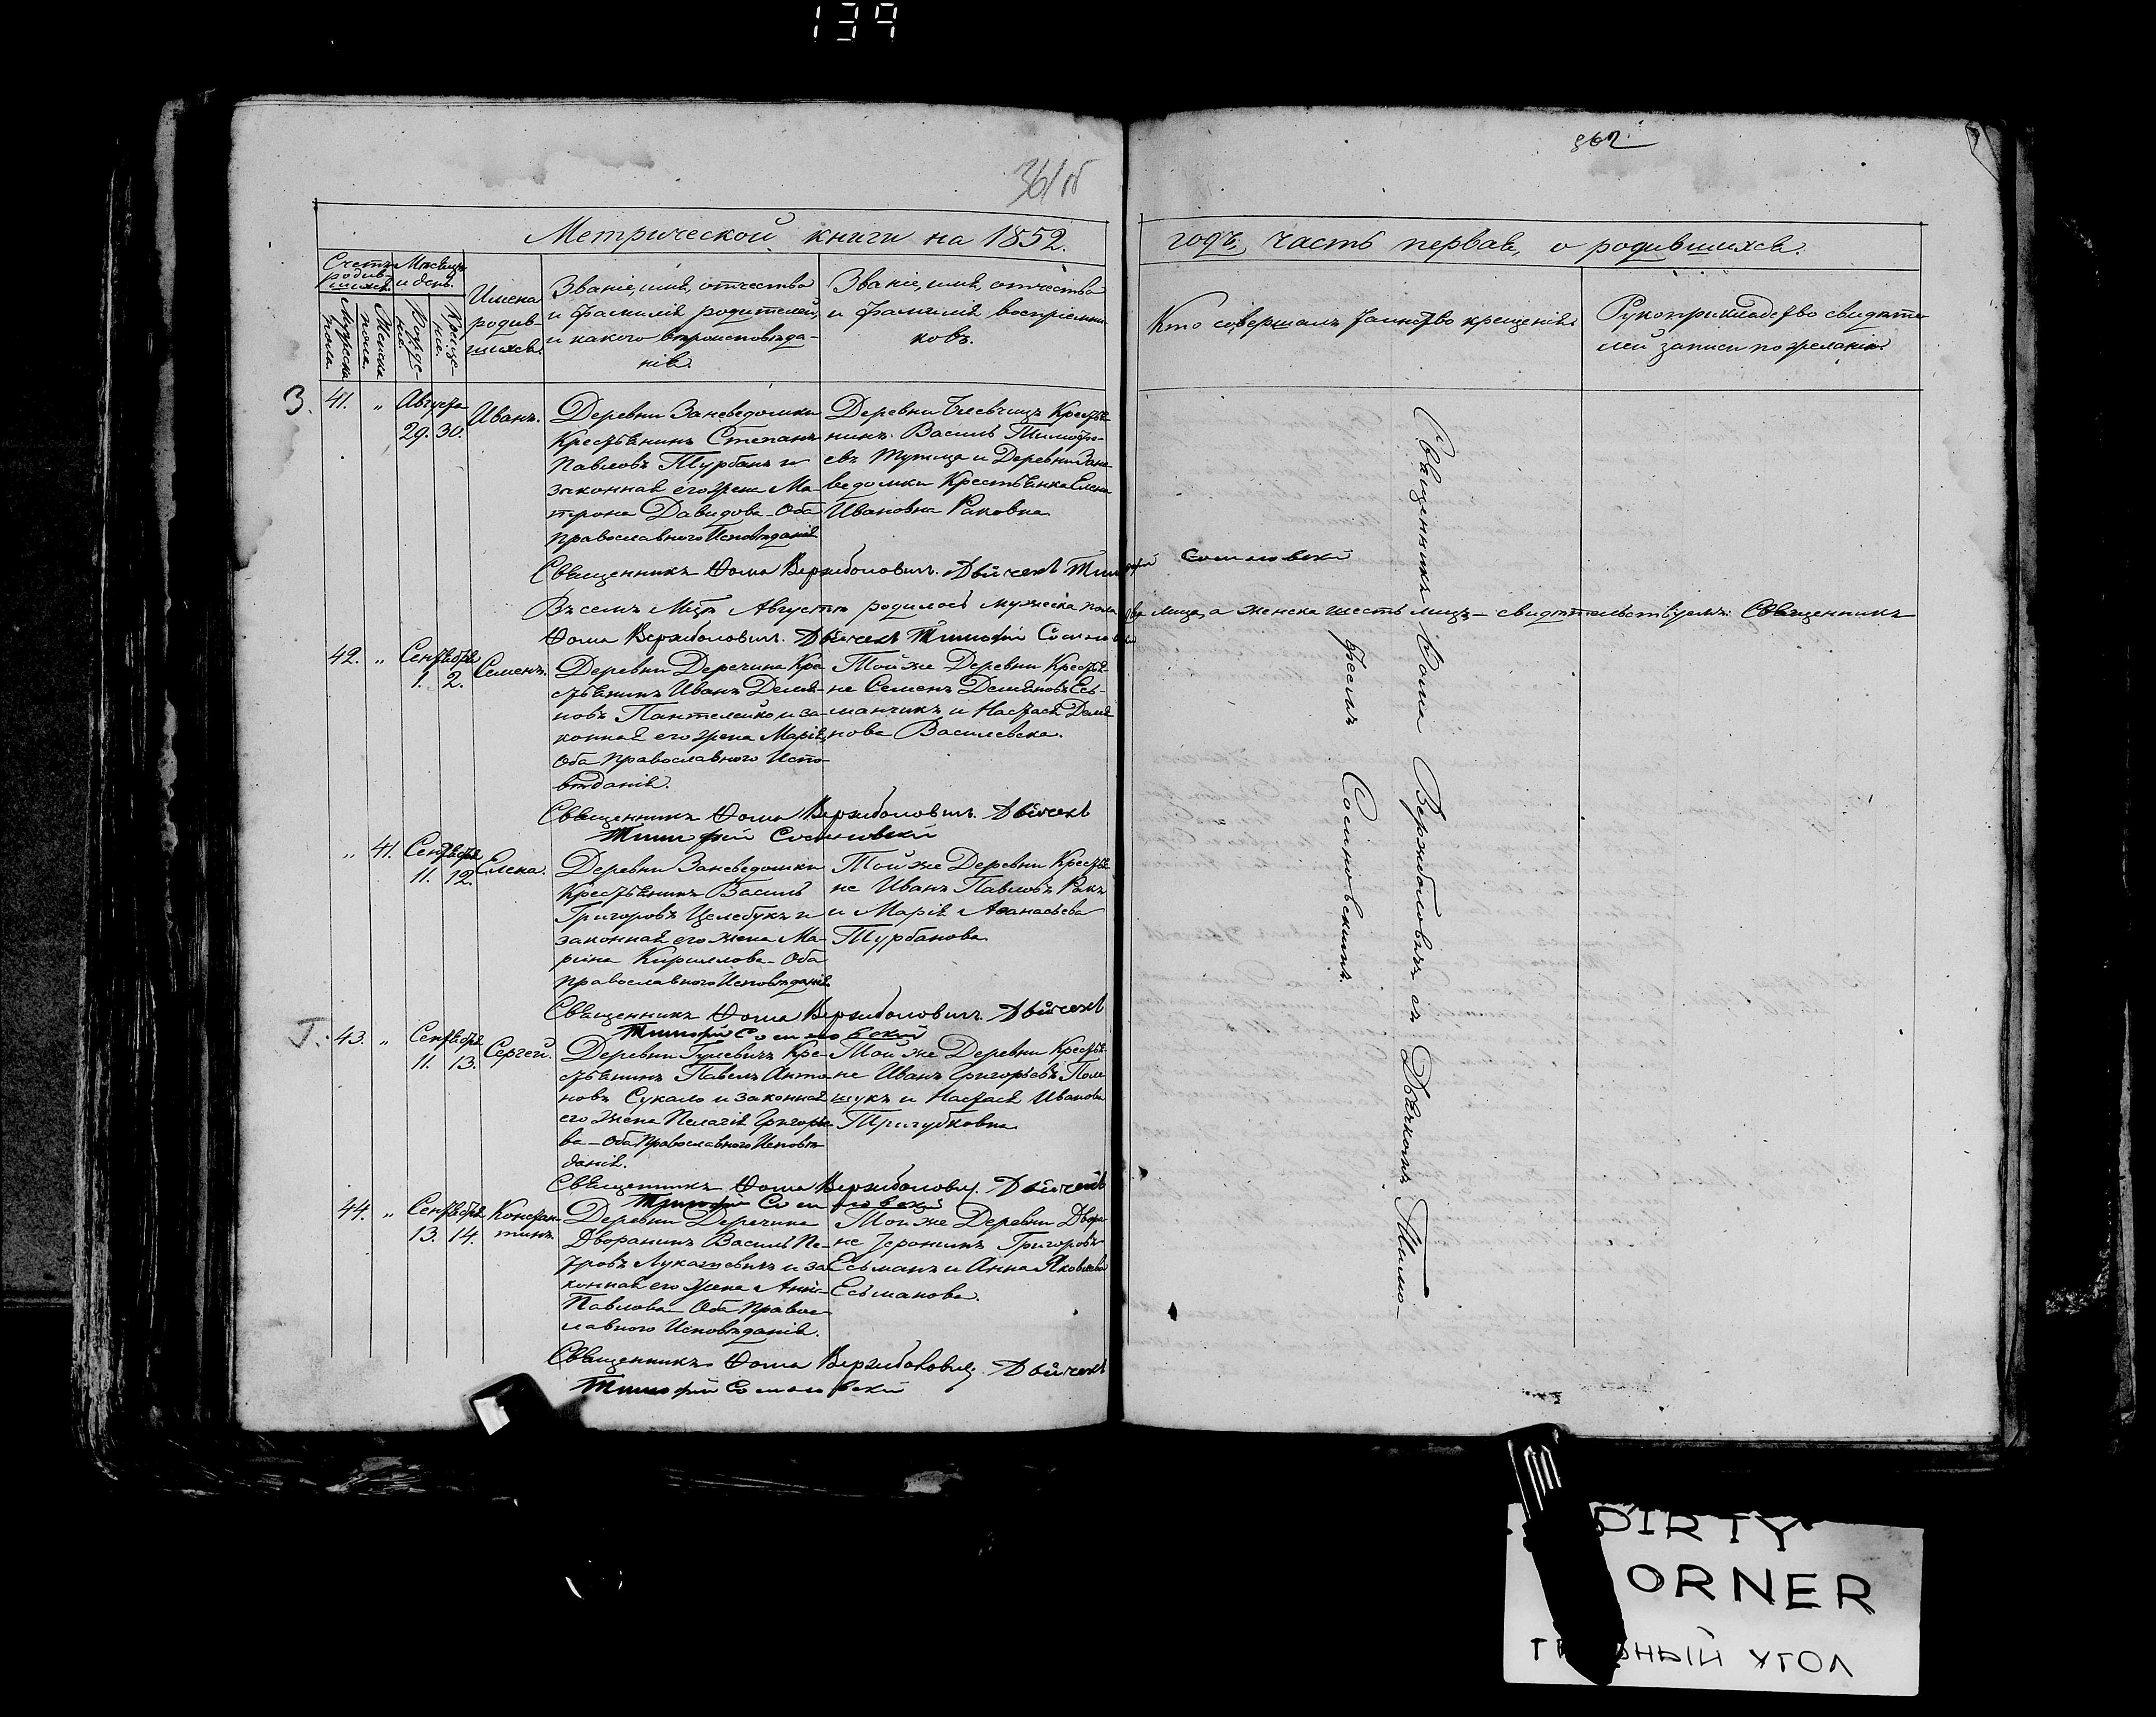 139
361 об
362
Метрической книги на 1852.
годъ, часть первая, о родившихся.
Счетъ родив-шихся.
Мѣсяцъ и день.
Мужеска пола.
Женска пола.
Рожде-нія.
Креще-нія.
Имена
родив-
шихся.
Званіе, имя, отчество
и фамилія родителей,
и какого вѣроисповѣда-
нія.
Званіе, имя, отчество
и фамилія воспріемни-
ковъ.
Кто совершалъ таинство крещенія.
Рукоприкладство свидѣте-
лей записи по желанію.
3. 41. „ Августа 29. 30. Иванъ.
Деревни Заневедомки
Крестьянинъ Степанъ
Павловъ Турбанъ и
законная его жена Ма-
трона Давидова – Оба
православного Исповѣданія
Деревни Крестья-
нинъ Василь Тимофе-
евъ и Деревни Зане-
ведомки Крестьянка Елена
Ивановна Раковна
Священникъ Фома Вержболовичъ. Дьячекъ Тимофей Сосиновскій
Въ семъ Мцѣ Августѣ родилось мужеска пола два лица, а женска шесть лицъ – свидѣтельствуемъ: Священникъ
Фома Вержболовичъ. Дьячекъ Тимофей Сосиновскій
42. „ Сентября 1. 2. Семенъ.
Деревни Деречина Кре-
стьянинъ Иванъ Демья-
новъ Пантелейко и за-
конная его жена Марія,
Оба православного Испо-
вѣданія.
Той же Деревни Крестья-
не Семенъ Демьяновъ Есь-
манчикъ и Настасья Демья-
нова Василевска.
Священникъ Фома Вержболовичъ. Дьячекъ
Тимофей Сосиновскій
„ 41. Сентября 11. 12. Елена.
Деревни Заневедомки
Крестьянинъ Василь
Григоровъ Целебукъ и
законная его жена Ма-
рина Кириллова – Оба
православного Исповѣданія
Той же Деревни Крестья-
не Иванъ Павловъ Ракъ
и Марія Аѳанасьева
Турбанова
Священникъ Фома Вержболовичъ. Дьячекъ
Тимофей Сосиновскій
43. „ Сентября 11. 13. Сергей.
Деревни Гулевичъ Кре-
стьянинъ Павелъ Анто-
новъ Сукало и законная
его жена Пелагія Григорье-
ва – Оба Православного Исповѣ-
данія.
Той же Деревни Крестья-
не Иванъ Григорьевъ Поле-
щукъ и Настася Иванова
Тригубковна
Священникъ Фома Вержболовичъ. Дьячекъ
Тимофей Сосиновскій
44. „ Сентября 13. 14. Констан-
тинъ.
Деревни Деречина
Дворанинъ Василь Пе-
тровъ Лукашевичъ и за-
конная его жена Анна
Павлова – Оба Правос-
лавного Исповѣданія.
Той же Деревни Двора-
не Іеронимъ Григоровъ
Есьманъ и Анна Яковлева
Есьманова.
Священникъ Фома Вержболовичъ. Дьячекъ
Тимофей Сосиновскій
Священникъ Фома Вержболовичъ съ Дьячкомъ Тимо-
феемъ Сосиновскимъ.
DIRTY
CORNER
ГРЯЗНЫЙ УГОЛ